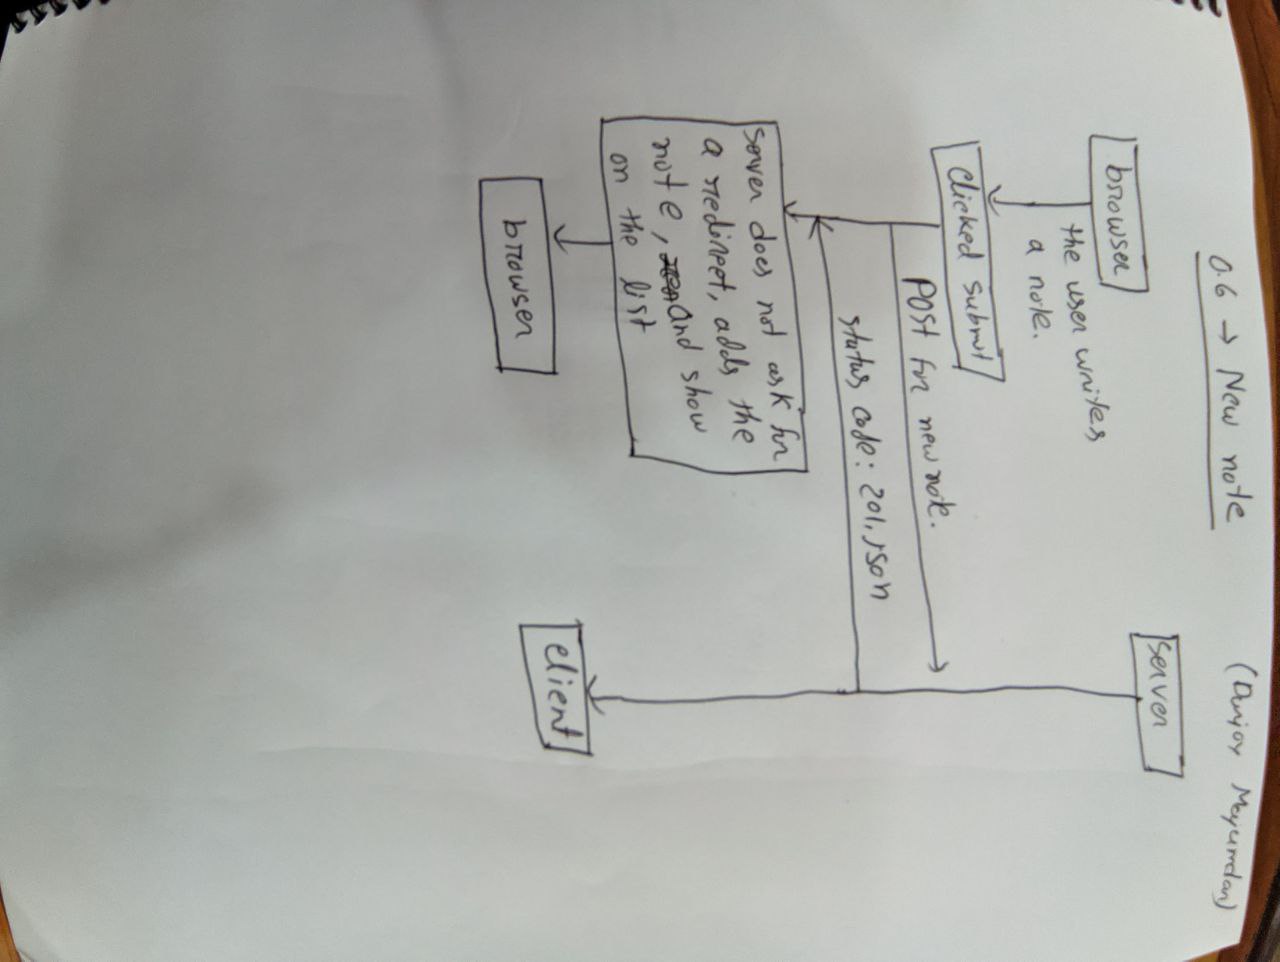 0.6 → New note
browser
server
the user writes
a note.
clicked submit
POST for new note.
status code: 201, json
Server does not ask for
a redirect, adds the
note, and show
on the list
browser
client